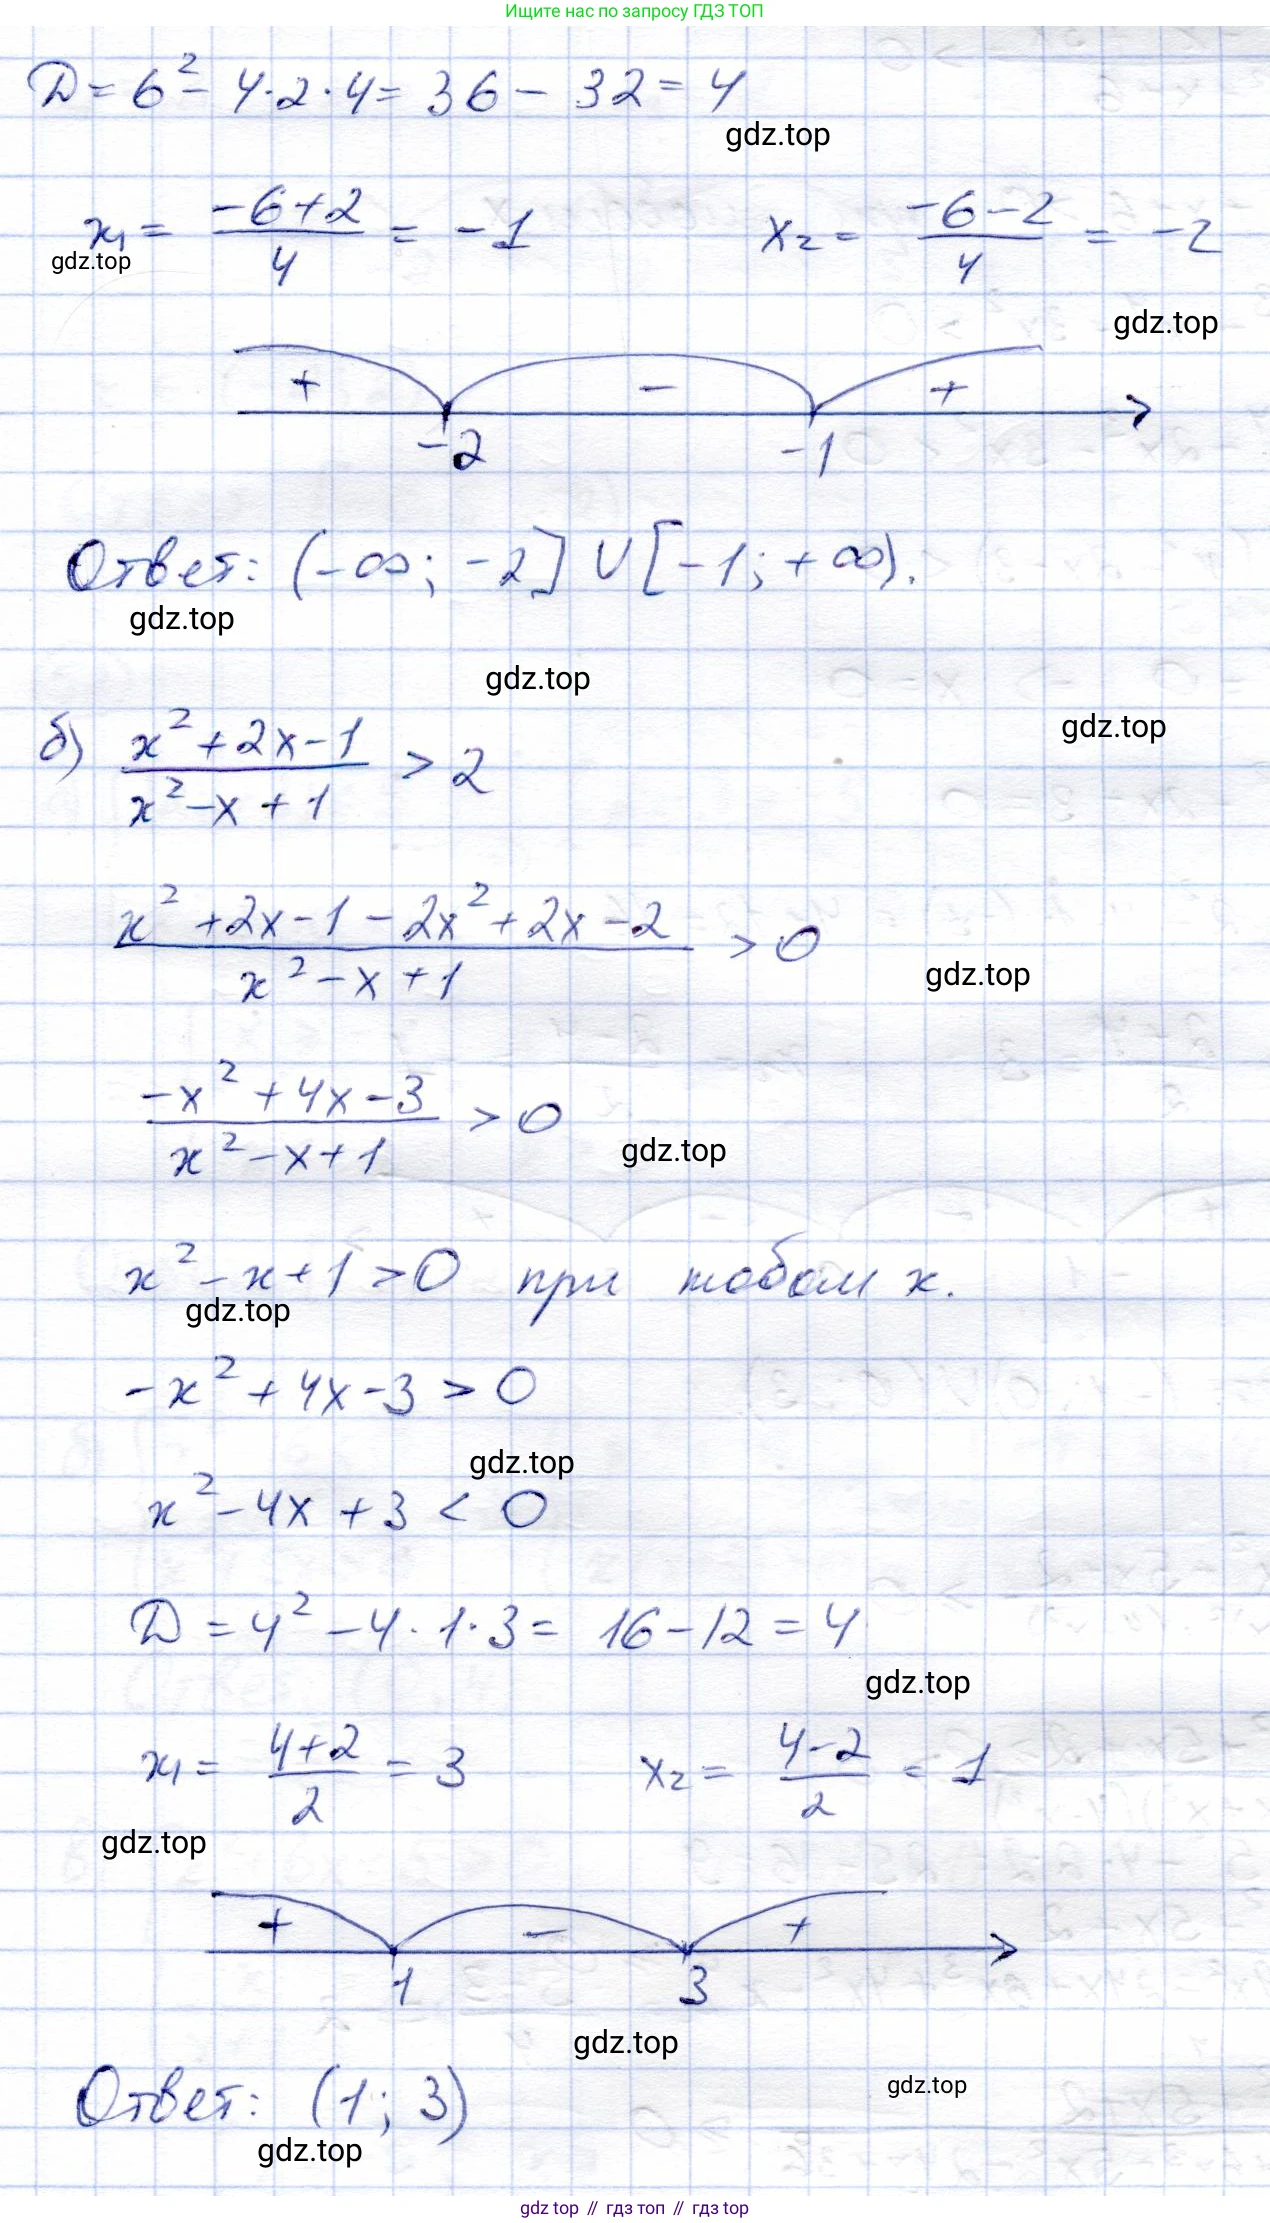 Ищите нас по запросу ГДЗ ТОП
D = 6² - 4·2·4 = 36 - 32 = 4
gdz.top
x₁ = (-6+2)/4 = -1 x₂ = (-6-2)/4 = -2
gdz.top
gdz.top
+ - +
-2 -1
Ответ: (-∞; -2] ∪ [-1; +∞).
gdz.top
gdz.top
gdz.top
б) (x²+2x-1)/(x²-x+1) > 2
(x²+2x-1-2x²+2x-2)/(x²-x+1) > 0
gdz.top
(-x²+4x-3)/(x²-x+1) > 0
gdz.top
x²-x+1 > 0 при любом x.
gdz.top
-x²+4x-3 > 0
gdz.top
x²-4x+3 < 0
D = 4² - 4·1·3 = 16-12 = 4
gdz.top
x₁ = (4+2)/2 = 3 x₂ = (4-2)/2 = 1
gdz.top
+ - +
1 3
gdz.top
gdz.top
Ответ: (1; 3)
gdz.top
gdz top // гдз топ // гдз top